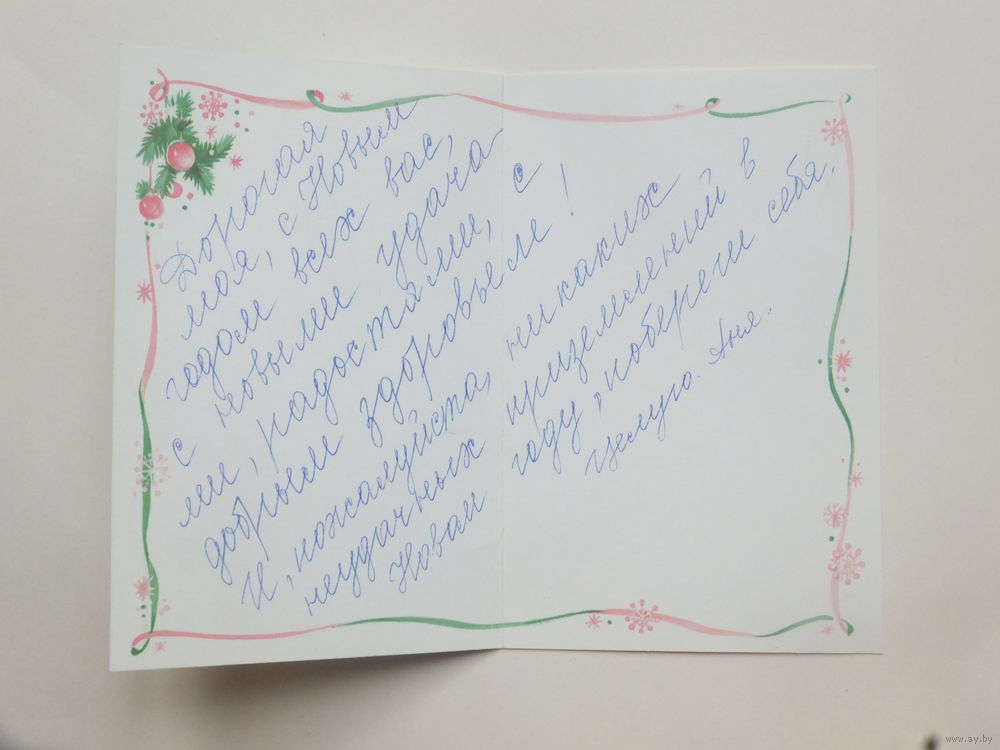 Дорогая
моя, с Новым
годом всех вас,
с новыми удача-
ми, радостями, с
добрым здоровьем!
И, пожалуйста, никаких
неудачных приземлений в
Новом году, побереги себя.
Целую. Аня.
www.ay.by